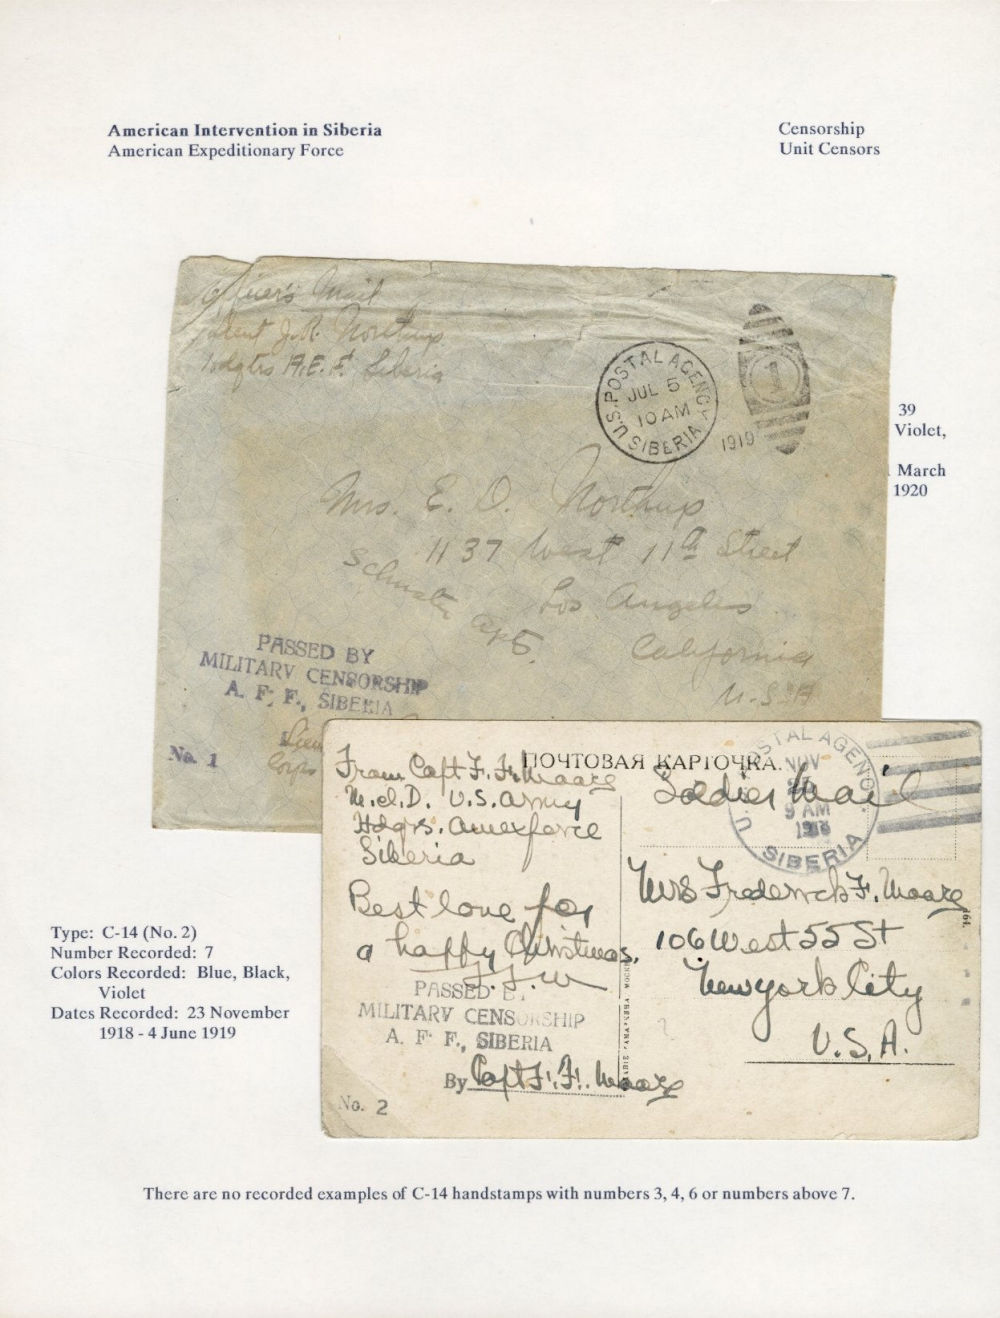 American Intervention in Siberia
American Expeditionary Force
Censorship
Unit Censors
Officer's Mail
J. R. Northup
Hdqtrs A.E.F. Siberia
U.S. POSTAL AGENCY
JUL 5
10 AM
SIBERIA
1919
1
39
Violet,
March
1920
Mrs. E. O. Northup
1137 West 11th Street
Schuster Apt.
Los Angeles
California
U.S.A
PASSED BY
MILITARY CENSORSHIP
A. F. F., SIBERIA
No. 1
Lieu
Corps
From Capt F. F. Moore
M.I.D. U.S. Army
Hdqrs. Amexforce
Siberia
Best love for
a happy Christmas.
F.F.M
PASSED B
MILITARY CENSORSHIP
A. F. F., SIBERIA
By Capt F. F. Moore
No. 2
ПОЧТОВАЯ КАРТОЧКА.
Soldier Mail
U. POSTAL AGENCY
NOV
9 AM
1918
SIBERIA
Mrs Frederick F. Moore
106 West 55 St
New York City
U.S.A.
Type: C-14 (No. 2)
Number Recorded: 7
Colors Recorded: Blue, Black,
Violet
Dates Recorded: 23 November
1918 - 4 June 1919
There are no recorded examples of C-14 handstamps with numbers 3, 4, 6 or numbers above 7.